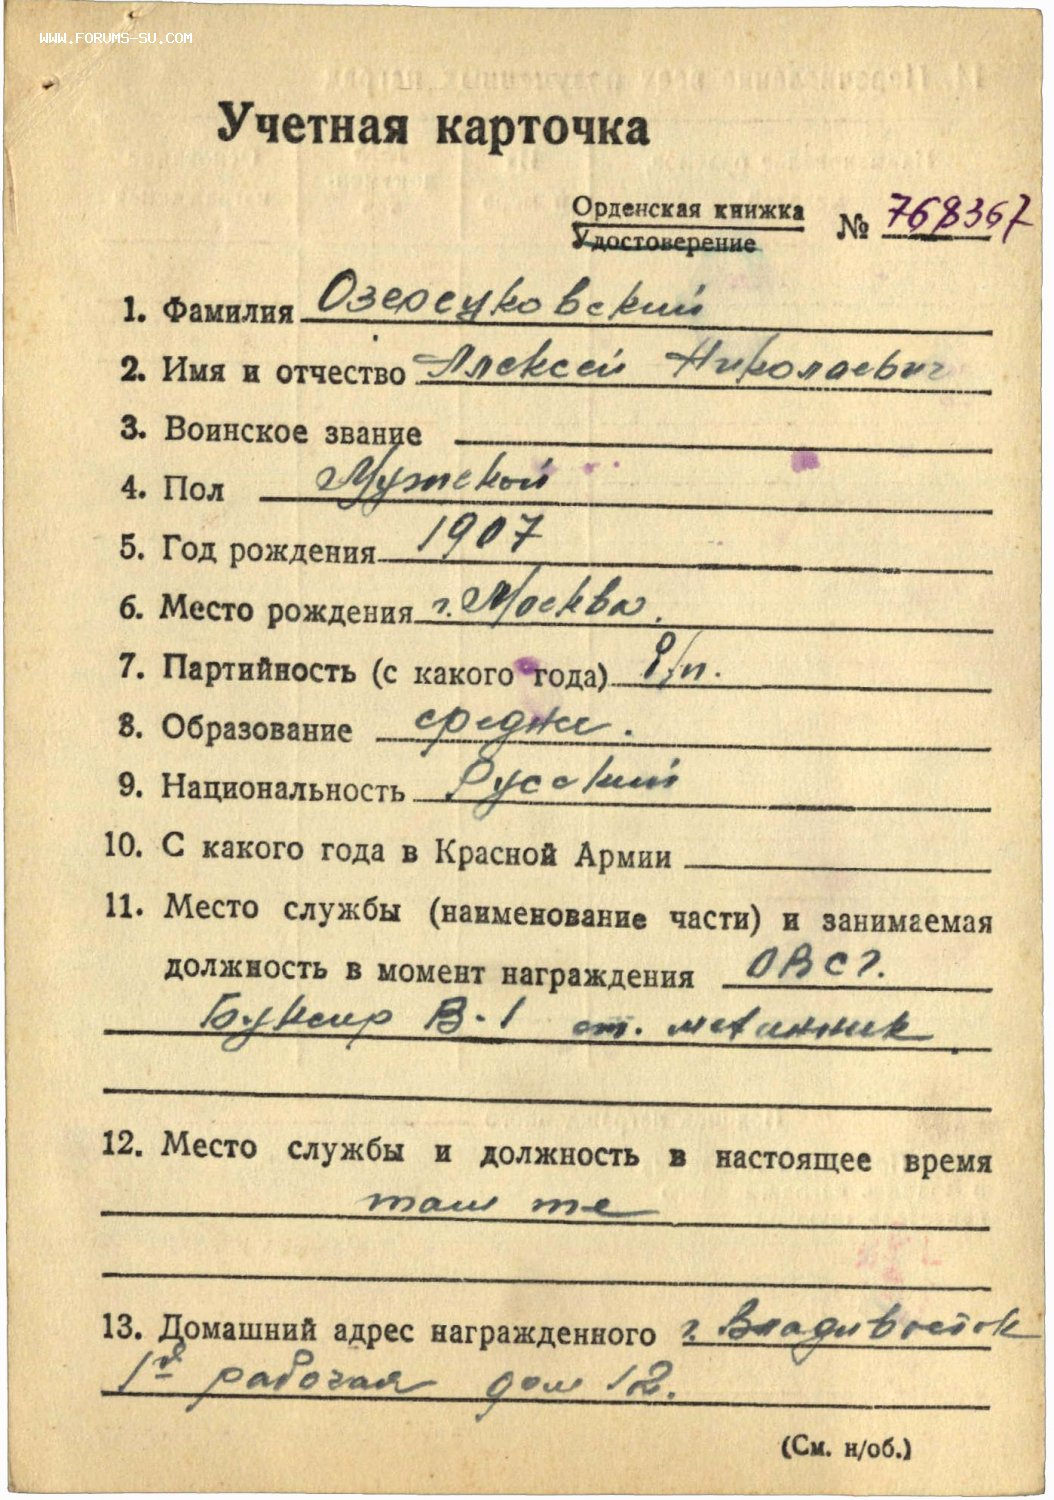 WWW.FORUMS-SU.COM
Учетная карточка
Орденская книжка
Удостоверение
№ 768367
1. Фамилия Озерецковский
2. Имя и отчество Алексей Николаевич
3. Воинское звание
4. Пол Мужской
5. Год рождения 1907
6. Место рождения г. Москва.
7. Партийность (с какого года) б/п.
8. Образование средне.
9. Национальность Русский
10. С какого года в Красной Армии
11. Место службы (наименование части) и занимаемая
должность в момент награждения
Буксир В-1 ст. механик
12. Место службы и должность в настоящее время
там же
13. Домашний адрес награжденного г. Владивосток
1я рабочая дом 12.
(См. н/об.)